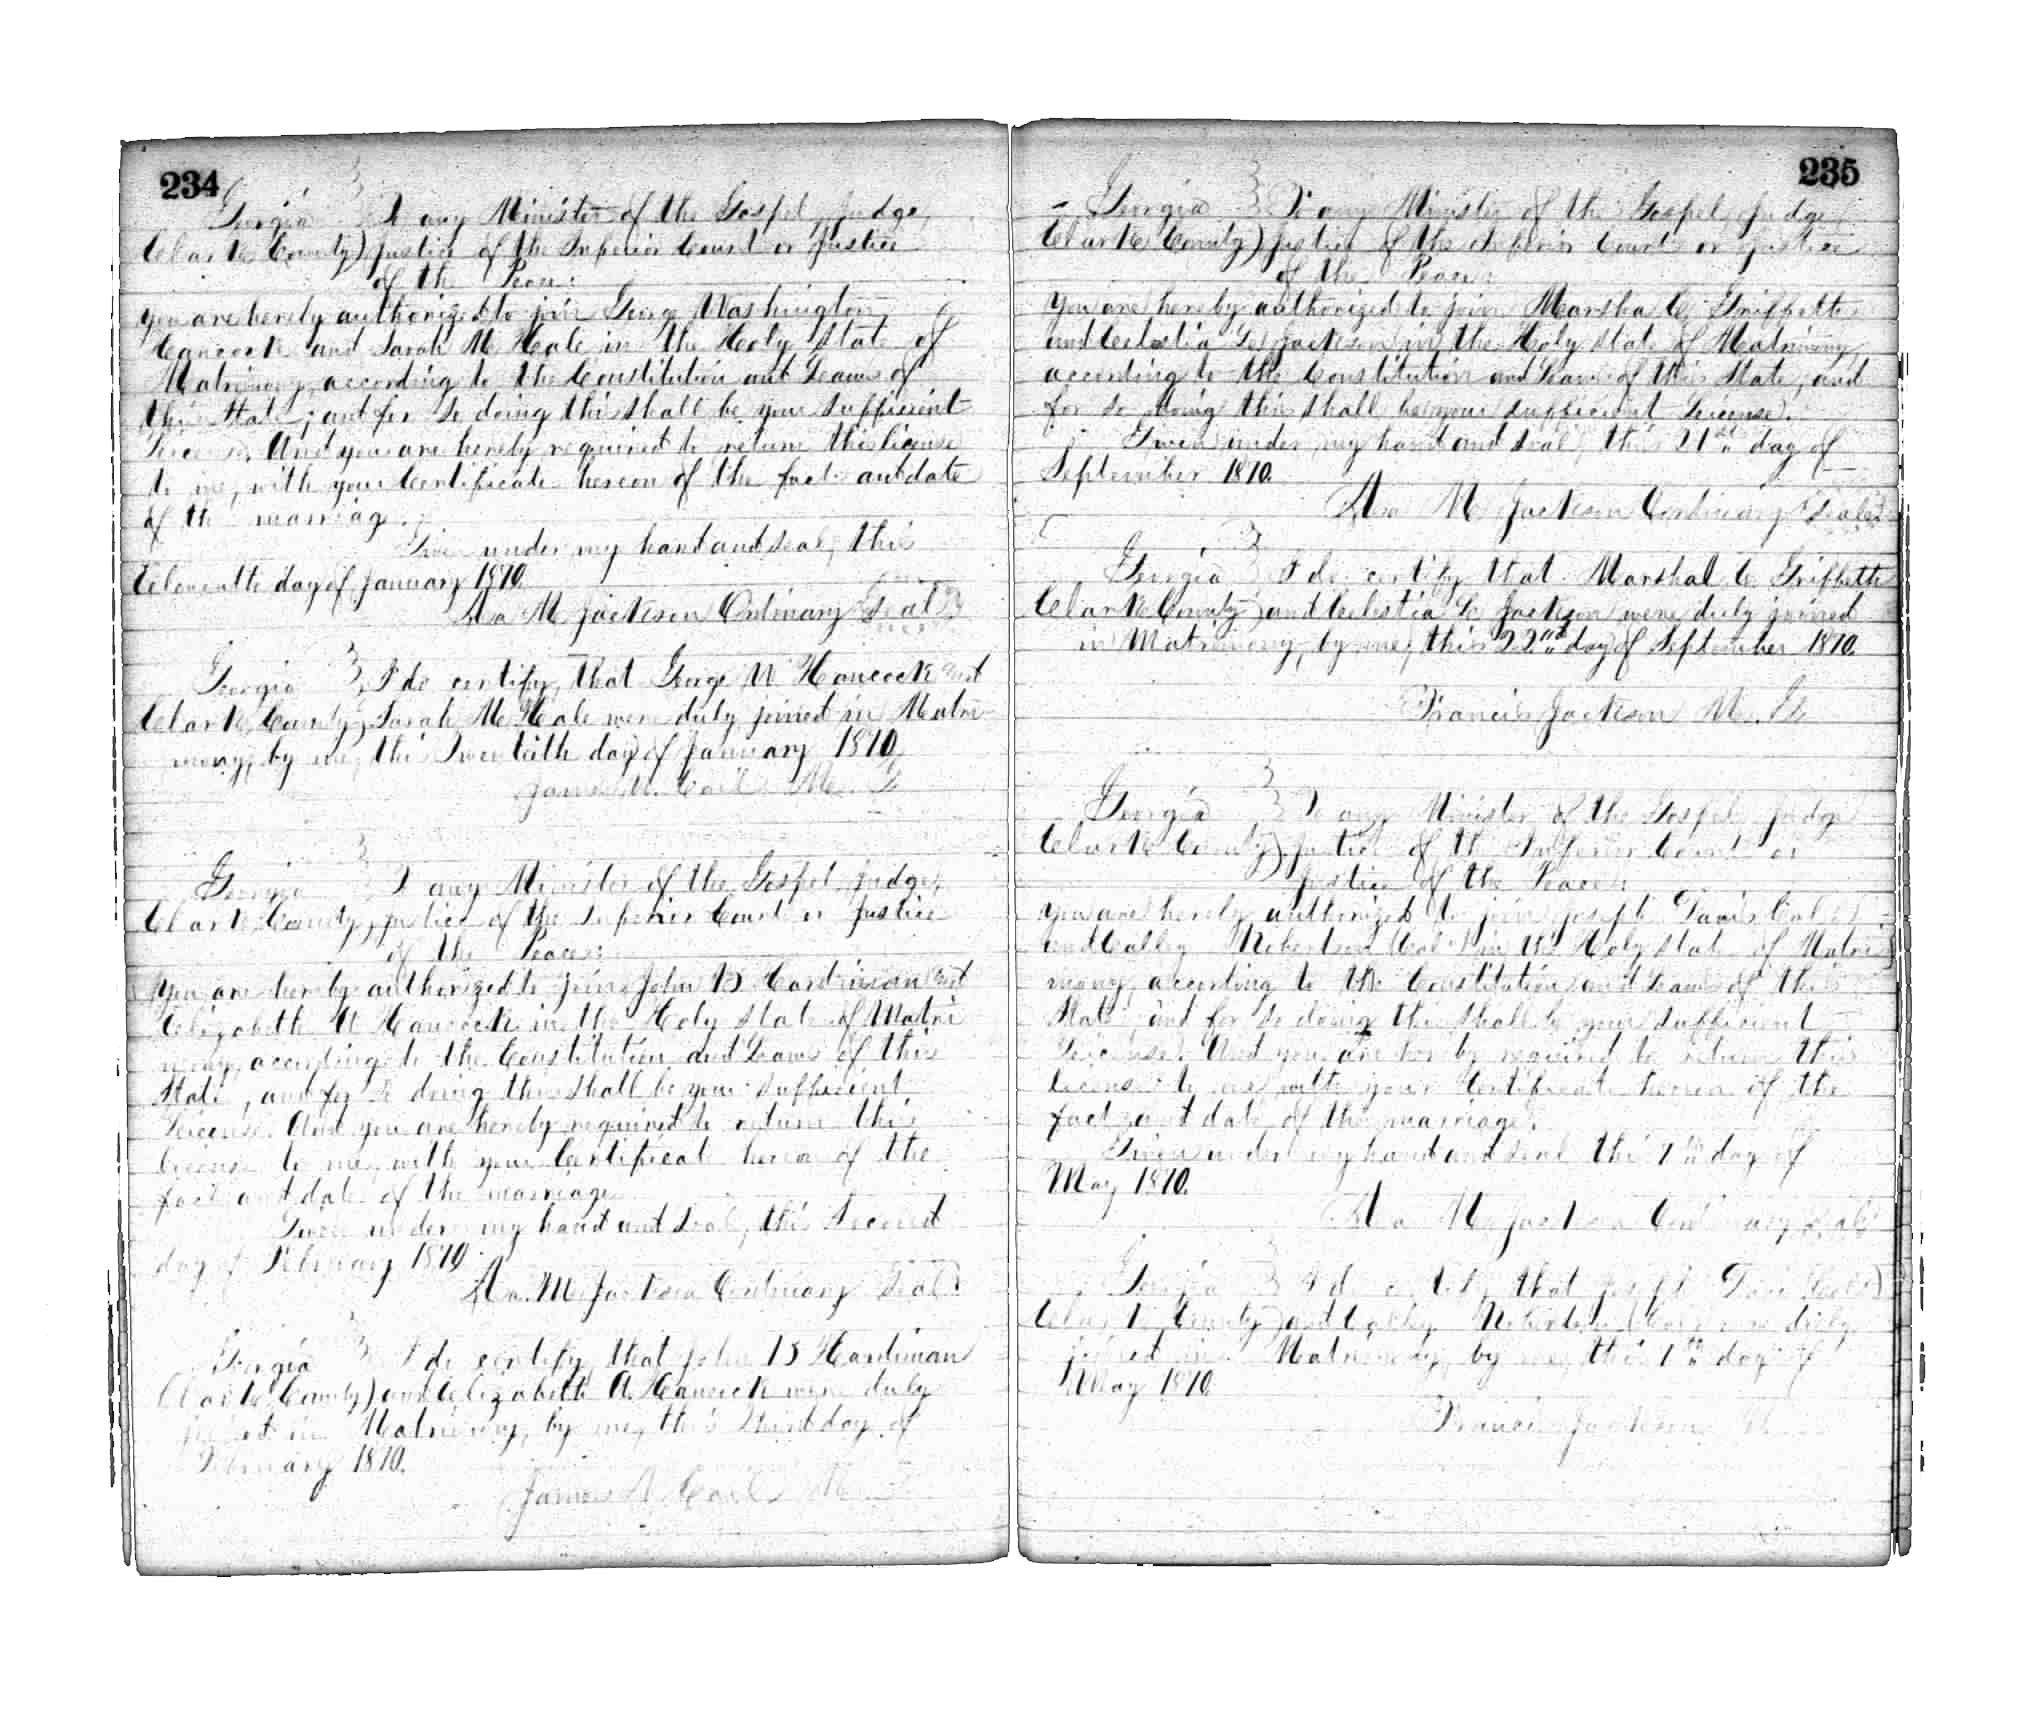 234
Georgia } To any Minister of the Gospel, Judge,
Clarke County) Justice of the Inferior Court or Justice
of the Peace:
You are hereby authorized to join George Washington
Hancock and Sarah M. Hale in the Holy State of
Matrimony, according to the Constitution and Laws of
this State; and for so doing this shall be your sufficient
License. And you are hereby required to return this license
to me, with your Certificate hereon of the fact and date
of the marriage.
Given under my hand and seal, this
Eleventh day of January 1870.
Asa M. Jackson Ordinary {Seal}
Georgia } I do certify, that George W. Hancock and
Clarke County, Sarah M. Hale were duly joined in Matri
mony, by me, this Twentieth day of January 1870.
James W. M. G
Georgia } To any Minister of the Gospel, Judge,
Clarke County, Justice of the Inferior Court or Justice
of the Peace:
You are hereby authorized to join John B Hardiman and
Elizabeth A Hancock in the Holy State of Matri
mony, according to the Constitution and Laws of this
State, and for so doing this shall be your sufficient
License. And you are hereby required to return this
license to me, with your Certificate hereon of the
fact and date of the marriage.
Given under my hand and seal, this Second
day of February 1870
Asa. M. Jackson Ordinary Seal
Georgia } I do certify, that John B Hardiman
Clarke County) and Elizabeth A. Hancock were duly
joined in Matrimony, by me, this Third day of
February 1870.
James M
235
Georgia } To any Minister of the Gospel, Judge
Clarke County) Justice of the Inferior Court or Justice
of the Peace:
You are hereby authorized to join Marshal C. Griffeth
and Celestia L. Jackson in the Holy State of Matrimony,
according to the Constitution and Laws of this State, and
for so doing this shall be your sufficient License.
Given under my hand and seal, this 21st day of
September 1870.
Asa M. Jackson Ordinary {Seal}
Georgia } I do certify that Marshal C. Griffeth
Clarke County) and Celestia L. Jackson were duly joined
in Matrimony, by me, this 22nd day of September 1870.
Francis Jackson M. G
Georgia } To any Minister of the Gospel, Judge
Clarke County) Justice of the Inferior Court or
Justice of the Peace:
You are hereby authorized to join Joseph Davis (Col)
and Calley Robertson (Col) in the Holy State of Matri
mony, according to the Constitution and Laws of this
State, and for so doing this shall be your sufficient
License. And you are hereby required to return this
license to me, with your Certificate hereon of the
fact and date of the marriage.
Given under my hand and seal this 7th day of
May 1870.
Asa M. Jackson Ordinary Seal
Georgia } I do certify that Joseph Davis (Col)
Clarke County) and Calley Robertson (Col) were duly
joined in Matrimony, by me, this day of
May 1870
Francis Jackson